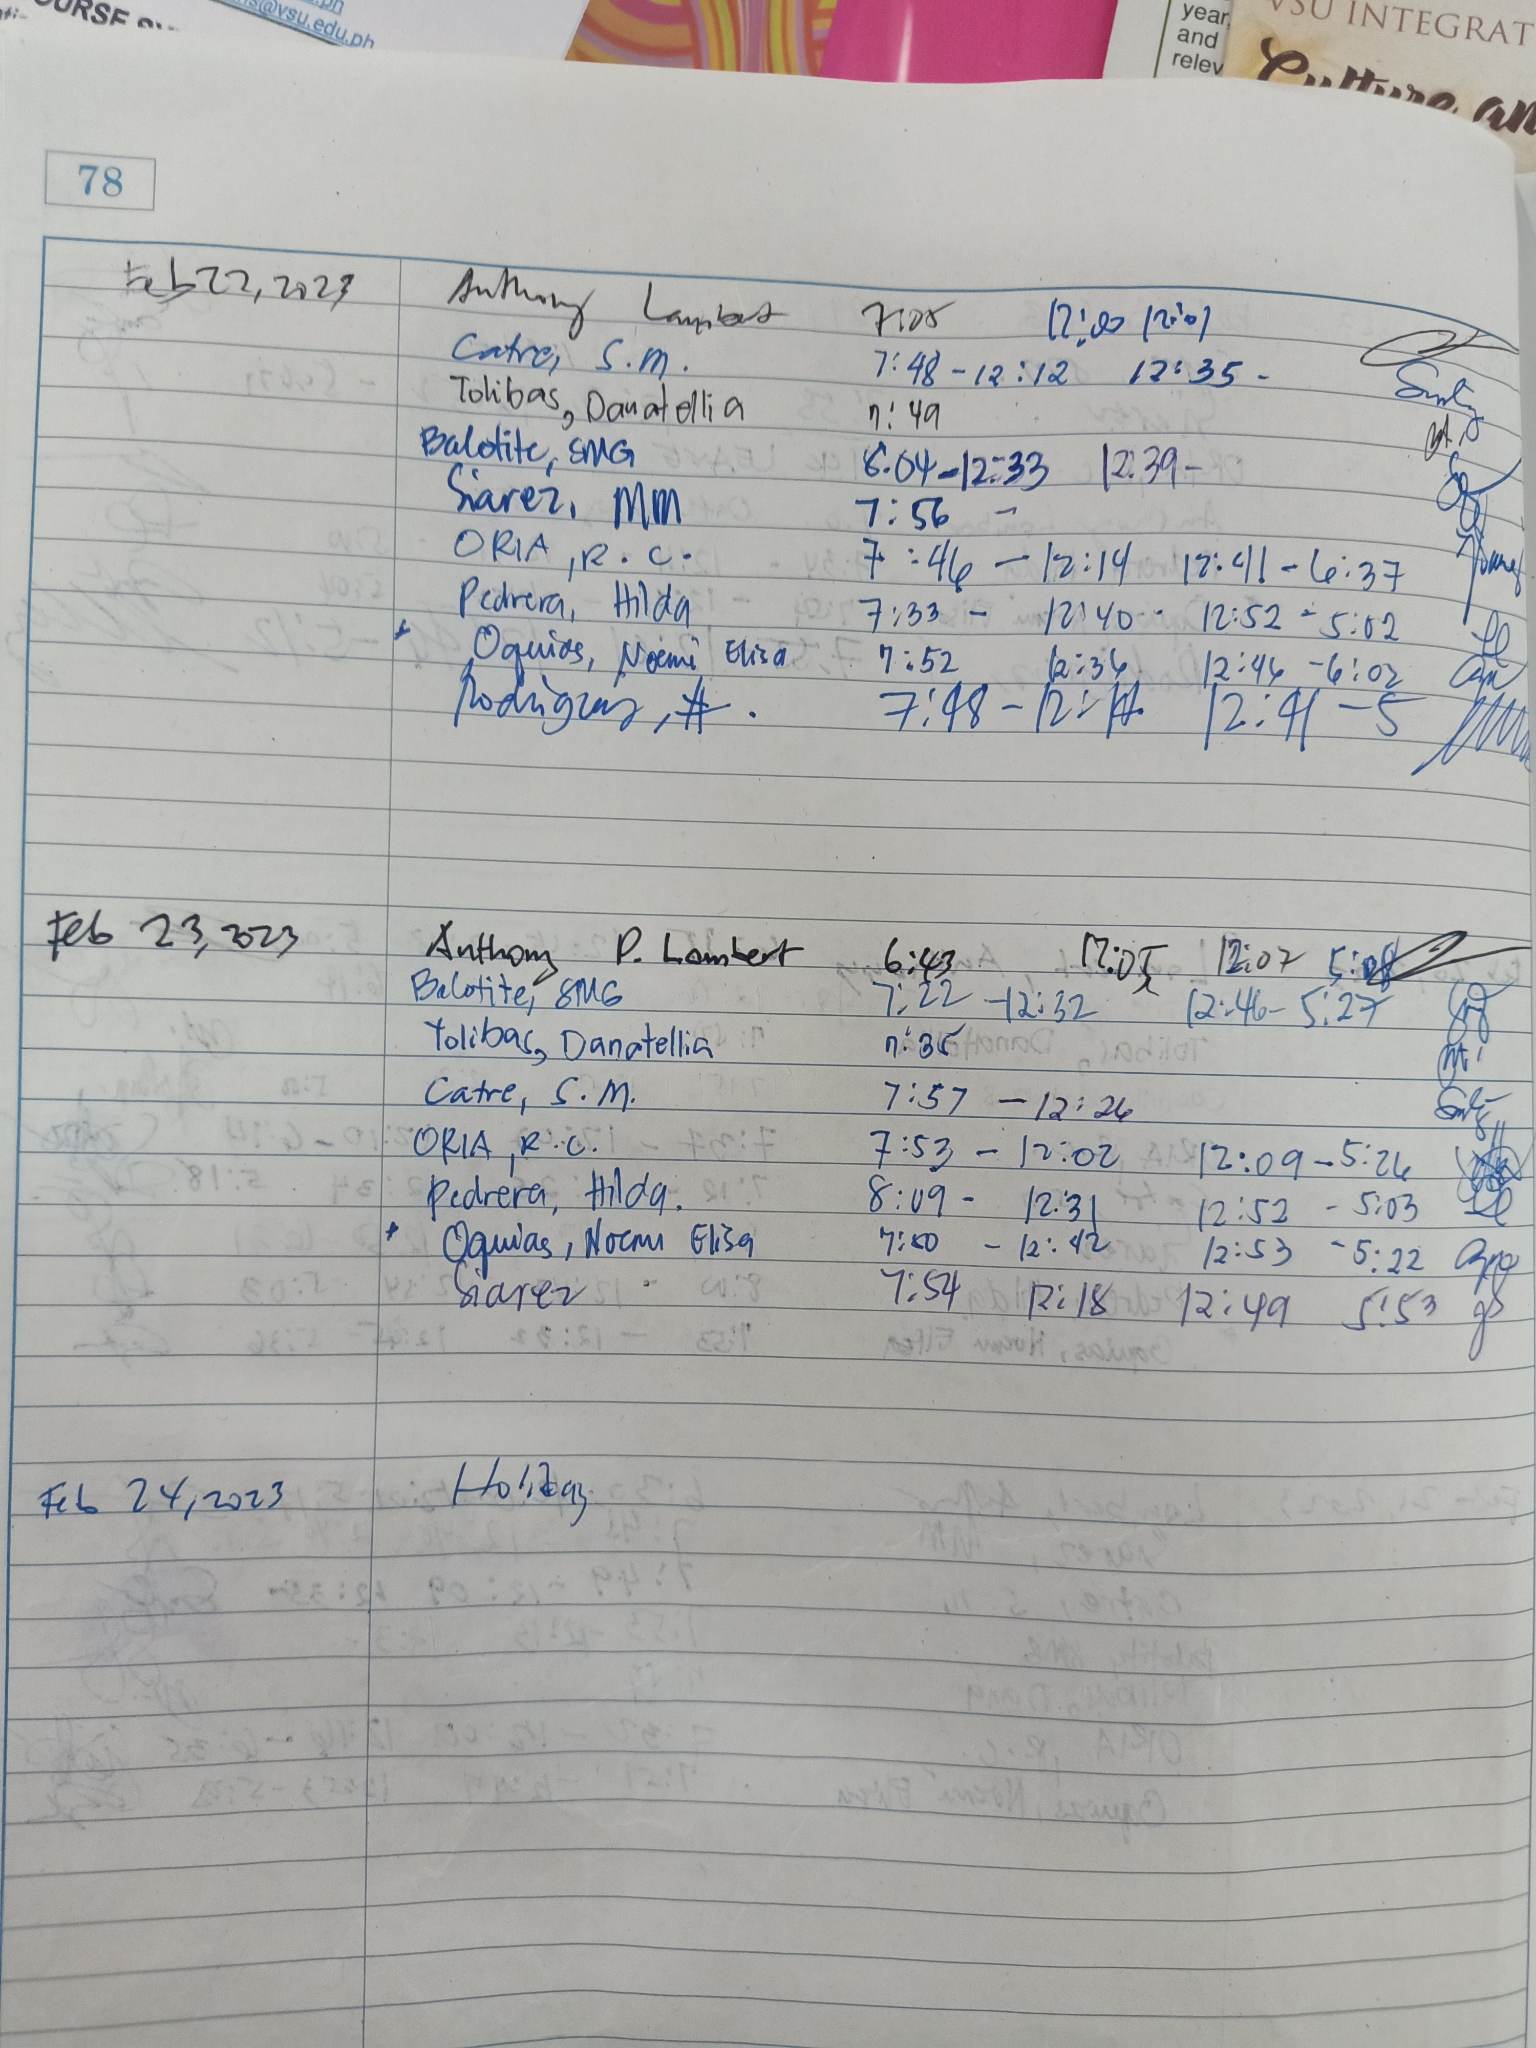 OURSE
@vsu.edu.ph
year
and
relev
VSU INTEGRAT
Culture an
78
Feb 22, 2023 Anthony Lambert 7:05 12:00 12:01
Catre, S.M. 7:48 - 12:12 12:35 -
Tolibas, Danatellia 7:49
Balotite, SMG 8:04 - 12:33 12:39 -
Siarez, MM 7:56 -
ORIA, R.C. 7:46 - 12:14 12:41 - 6:37
Pedrera, Hilda 7:33 - 12:40 - 12:52 - 5:02
* Oquias, Noemi Eliza 7:52 12:36 12:46 - 6:02
Rodriguez, A. 7:48 - 12:14 12:41 - 5
Feb 23, 2023 Anthony P. Lambert 6:43 12:05 12:07 5:08
Balotite, SMG 7:22 - 12:32 12:46 - 5:27
Tolibas, Danatellia 7:35
Catre, S.M. 7:57 - 12:26
ORIA, R.C. 7:53 - 12:02 12:09 - 5:26
Pedrera, Hilda. 8:09 - 12:31 12:52 - 5:03
* Oquias, Noemi Eliza 7:50 - 12:42 12:53 - 5:22
Siarez 7:54 12:18 12:49 5:53
Feb 24, 2023 Holiday